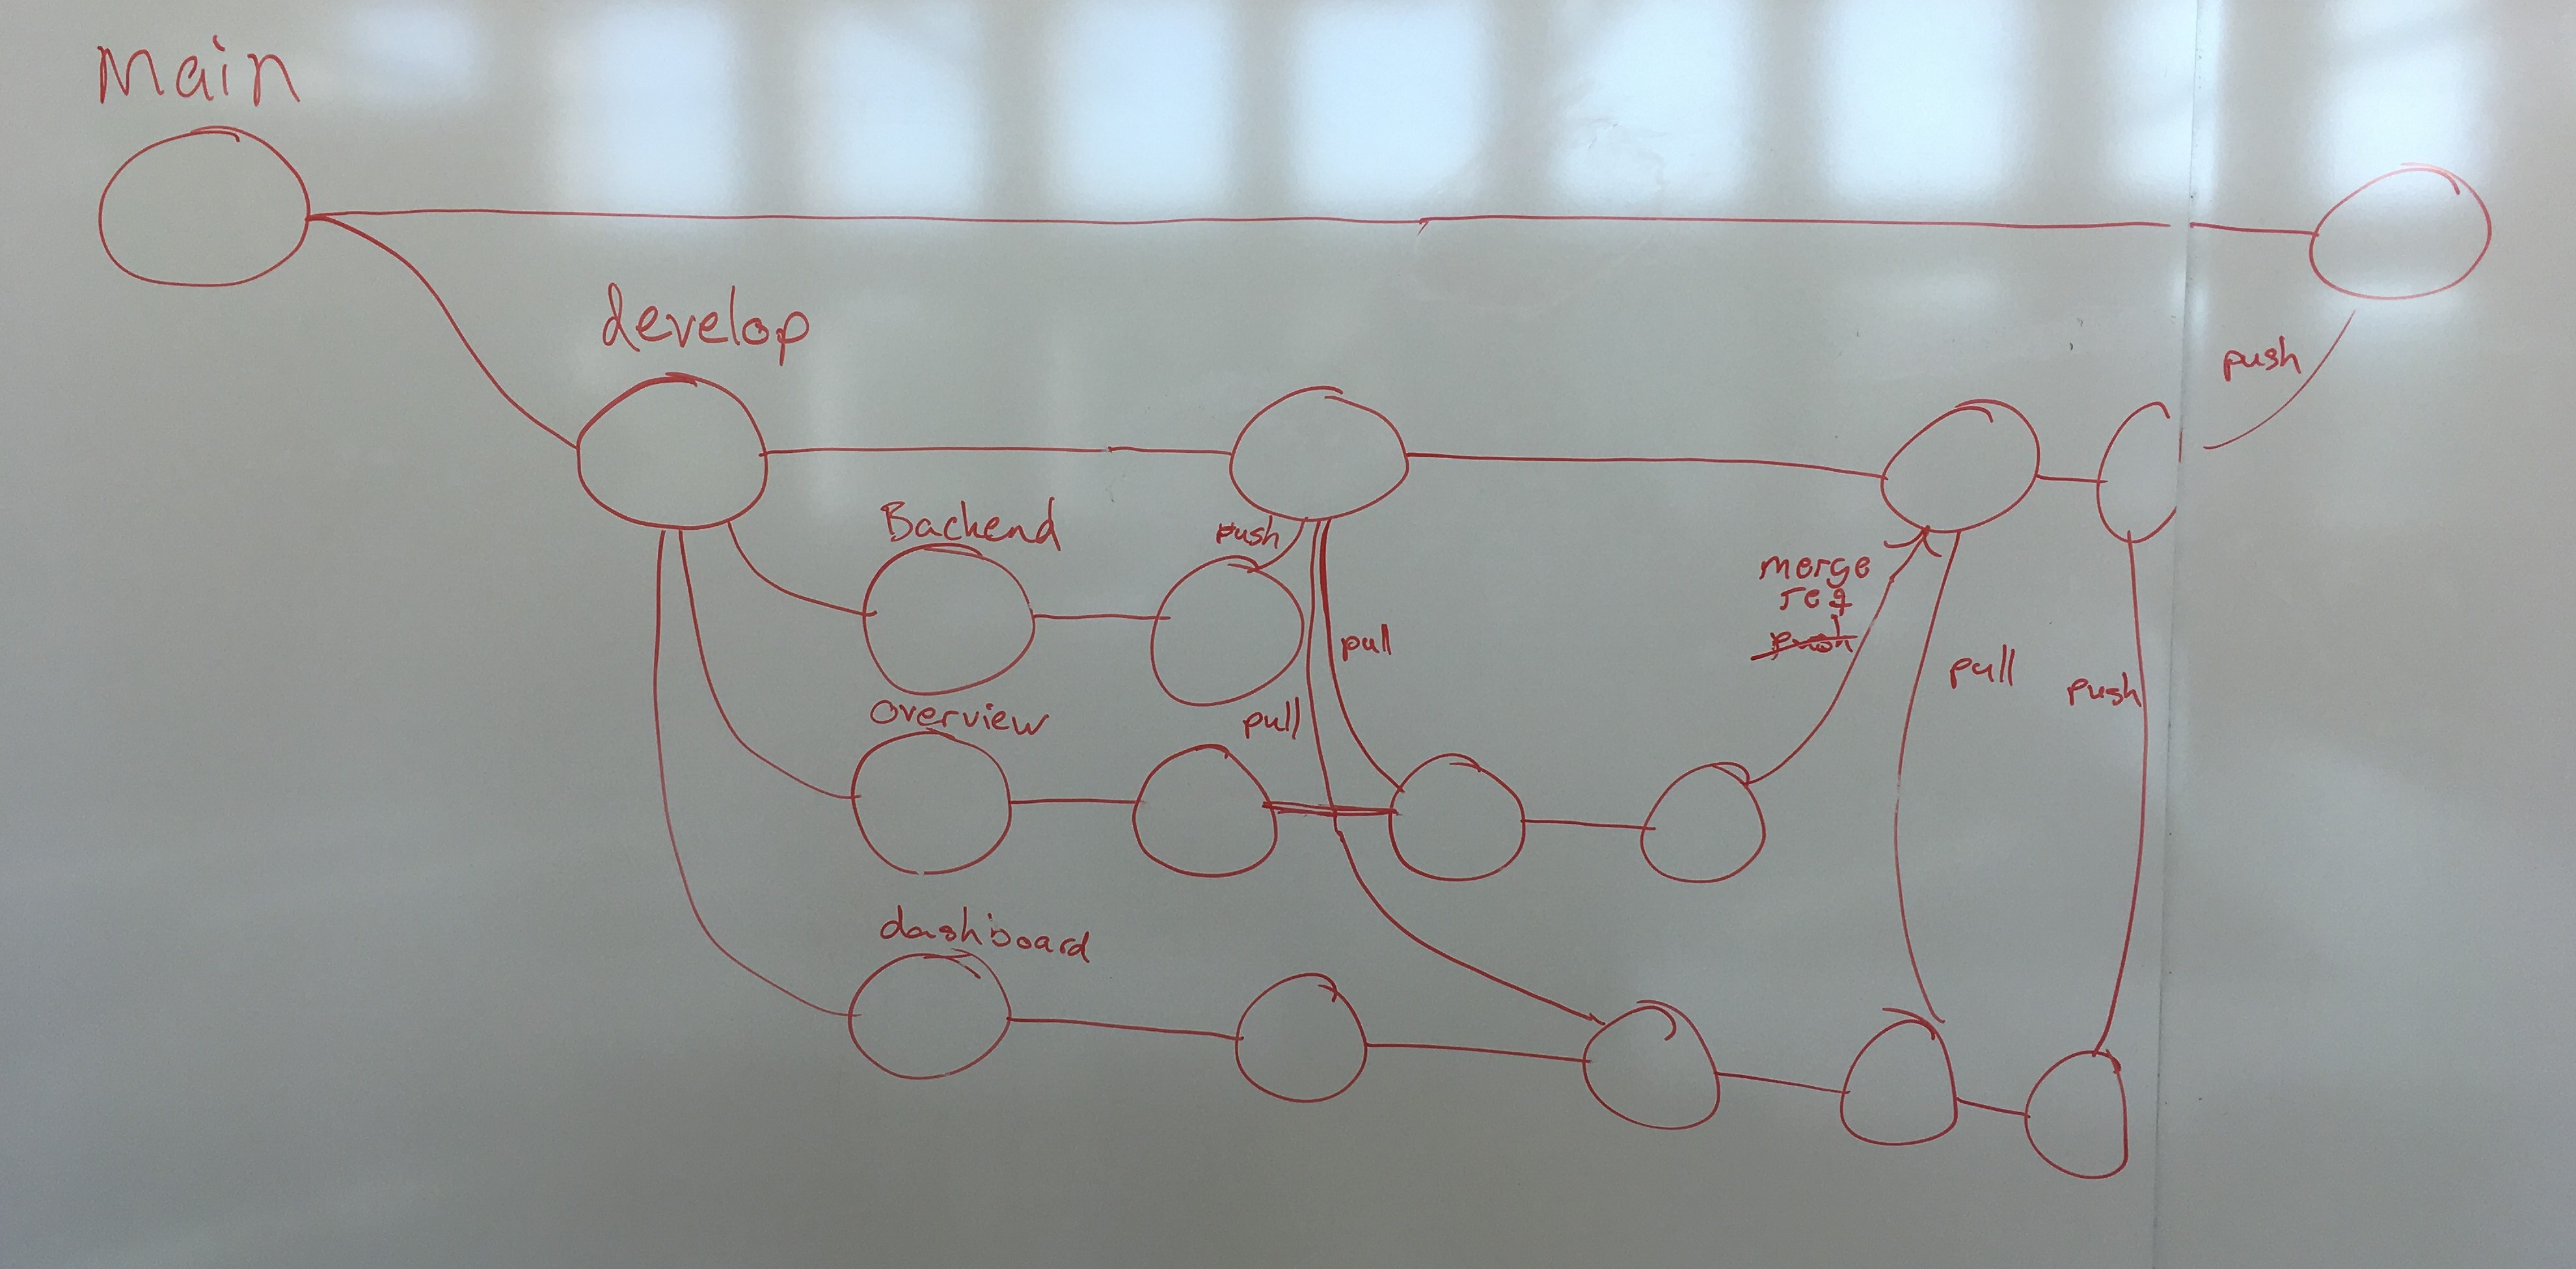 Main
develop
push
Backend
push
merge
req
push
pull
pull
push
overview
pull
dashboard